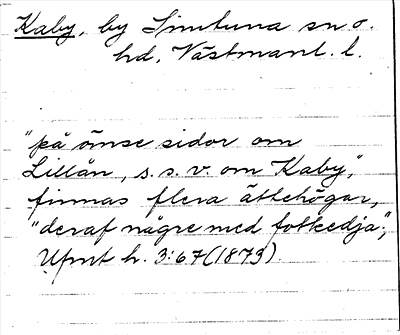 Kaby, by Simtuna sn o.
hd, Västmanl. l.
"på ömse sidor om
Lillån, s.s.v. om Kaby",
finnas flera ättehögar,
"deraf någre med fotkedja",
Ufmt h. 3:67 (1873)